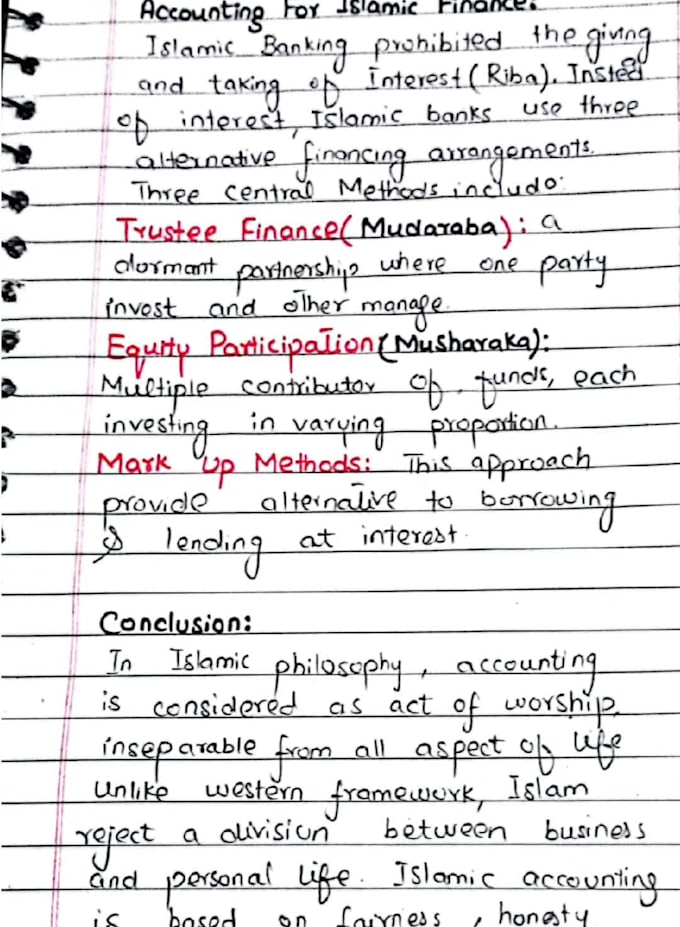 Accounting For Islamic Finance:
Islamic Banking prohibited the giving
and taking of Interest (Riba). Insted
of interest, Islamic banks use three
alternative financing arrangements.
Three central Methods include:
Trustee Finance (Mudaraba): a
dormant partnership where one party
invest and other manage.
Equity Participation (Musharaka):
Multiple contributor of funds, each
investing in varying proportion.
Mark Up Methods: This approach
provide alternative to borrowing
& lending at interest.
Conclusion:
In Islamic philosophy, accounting
is considered as act of worship,
inseparable from all aspect of life
Unlike western framework, Islam
reject a division between business
and personal life. Islamic accounting
is based on fairness, honesty